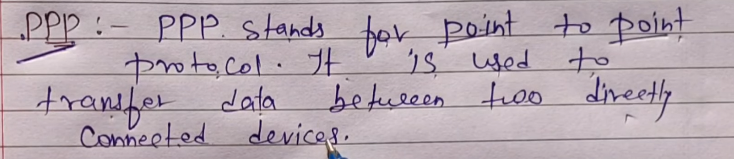 PPP :- PPP. Stands for point to point
protocol. It is used to
transfer data between two directly
Connected devices.